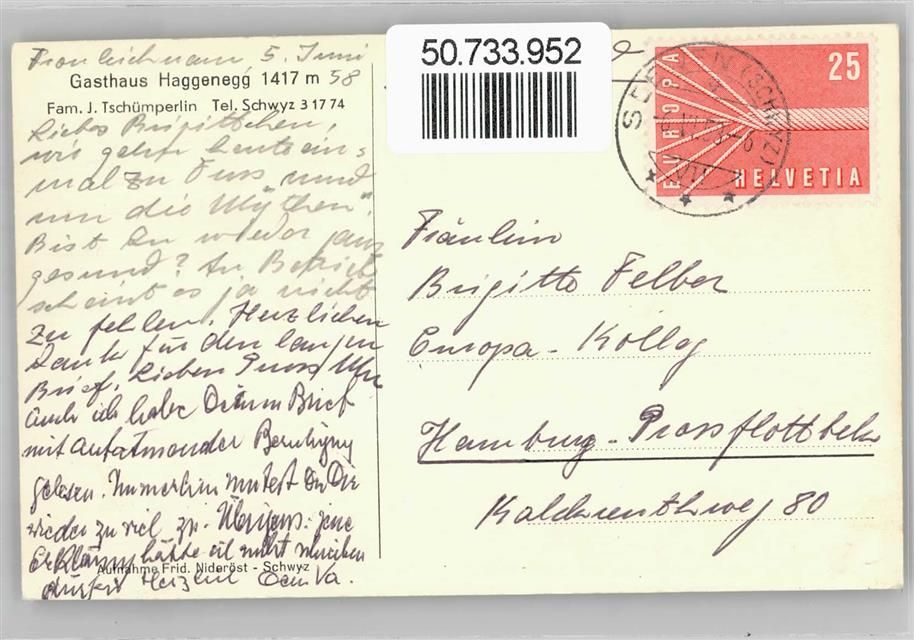 50.733.952
Fronleichnam, 5. Juni
58
Gasthaus Haggenegg 1417 m
Fam. J. Tschümperlin Tel. Schwyz 3 17 74
Liebes Brigittchen,
wir gehen heute ein-
mal zu Fuss rund
um die Mythen.
Bist Du wieder ganz
gesund? An Betrieb
scheint es ja nicht
zu fehlen. Herzlichen
Dank für den langen
Brief. Lieben Gruss
Auch ich habe Deinen Brief
mit aufatmender Beruhigung
gelesen. Immerhin mutest Du Dir
wieder zu viel zu. Übrigens: jene
Erklärung hätte ich nicht schreiben
dürfen. Herzlich Dein Va.
Aufnahme Frid. Nideröst - Schwyz
EUROPA
25
HELVETIA
(SCHWYZ)
Fräulein
Brigitte Felber
Europa-Kolleg
Hamburg-Grossflottbek
Kalckreuthweg 80